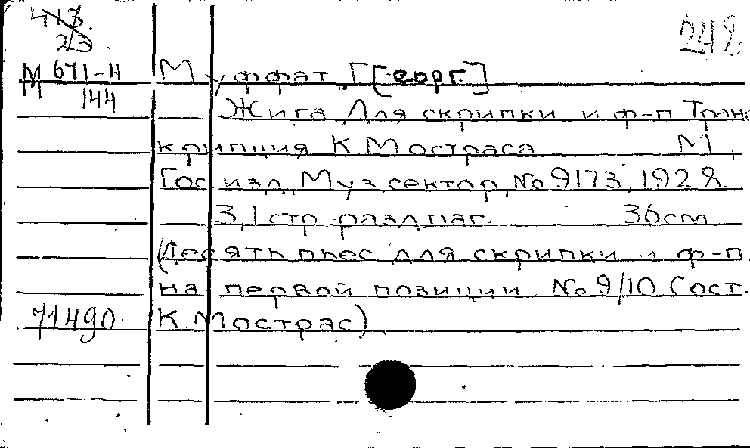 413
23
248
М 671-Н
М 144
Муффат, Г[еорг]
Жига Для скрипки и ф-п Транс
крипция К Мостраса М
Гос изд, Муз сектор, № 9173, 1928
3, 1 стр разд паг. 36 см
(Десять пьес для скрипки и ф-п.
на первой позиции № 9/10 Сост.
71490 К Мострас)